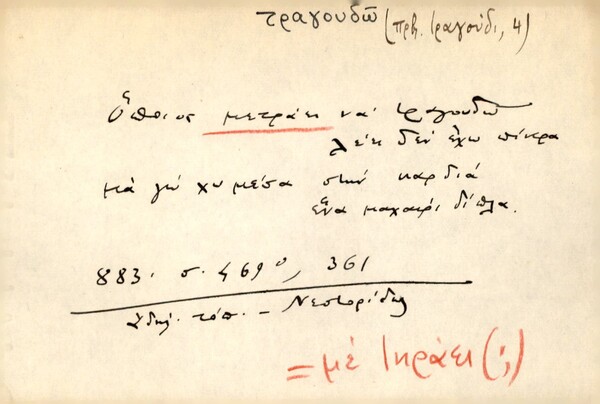 τραγουδῶ (πρβ. τραγούδι, 4)
Ὅποιος μετράει νὰ τραγουδῶ
λέει δὲν ἔχω πίκρα
μὰ γὼ χω μέσα στὴν καρδιὰ
ἕνα μαχαίρι δίπλα.
883. σ. 469, 361
τόπ. - Νεστορίδης
= μὲ τηράει (;)